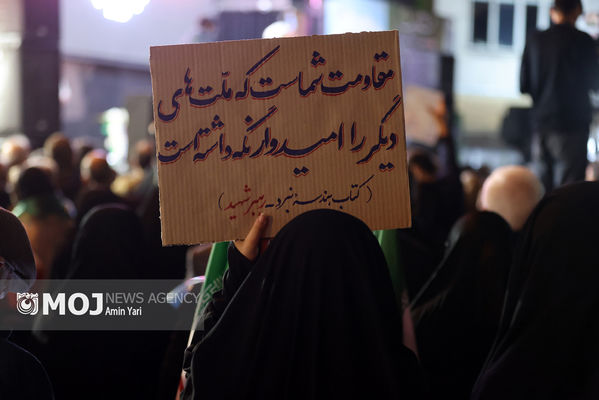 مقاومت شماست که ملّت‌های
دیگر را امیدوار نگه داشته است
(کتاب هندسه نبرد _ رهبر شهید)
MOJ NEWS AGENCY
Amin Yari